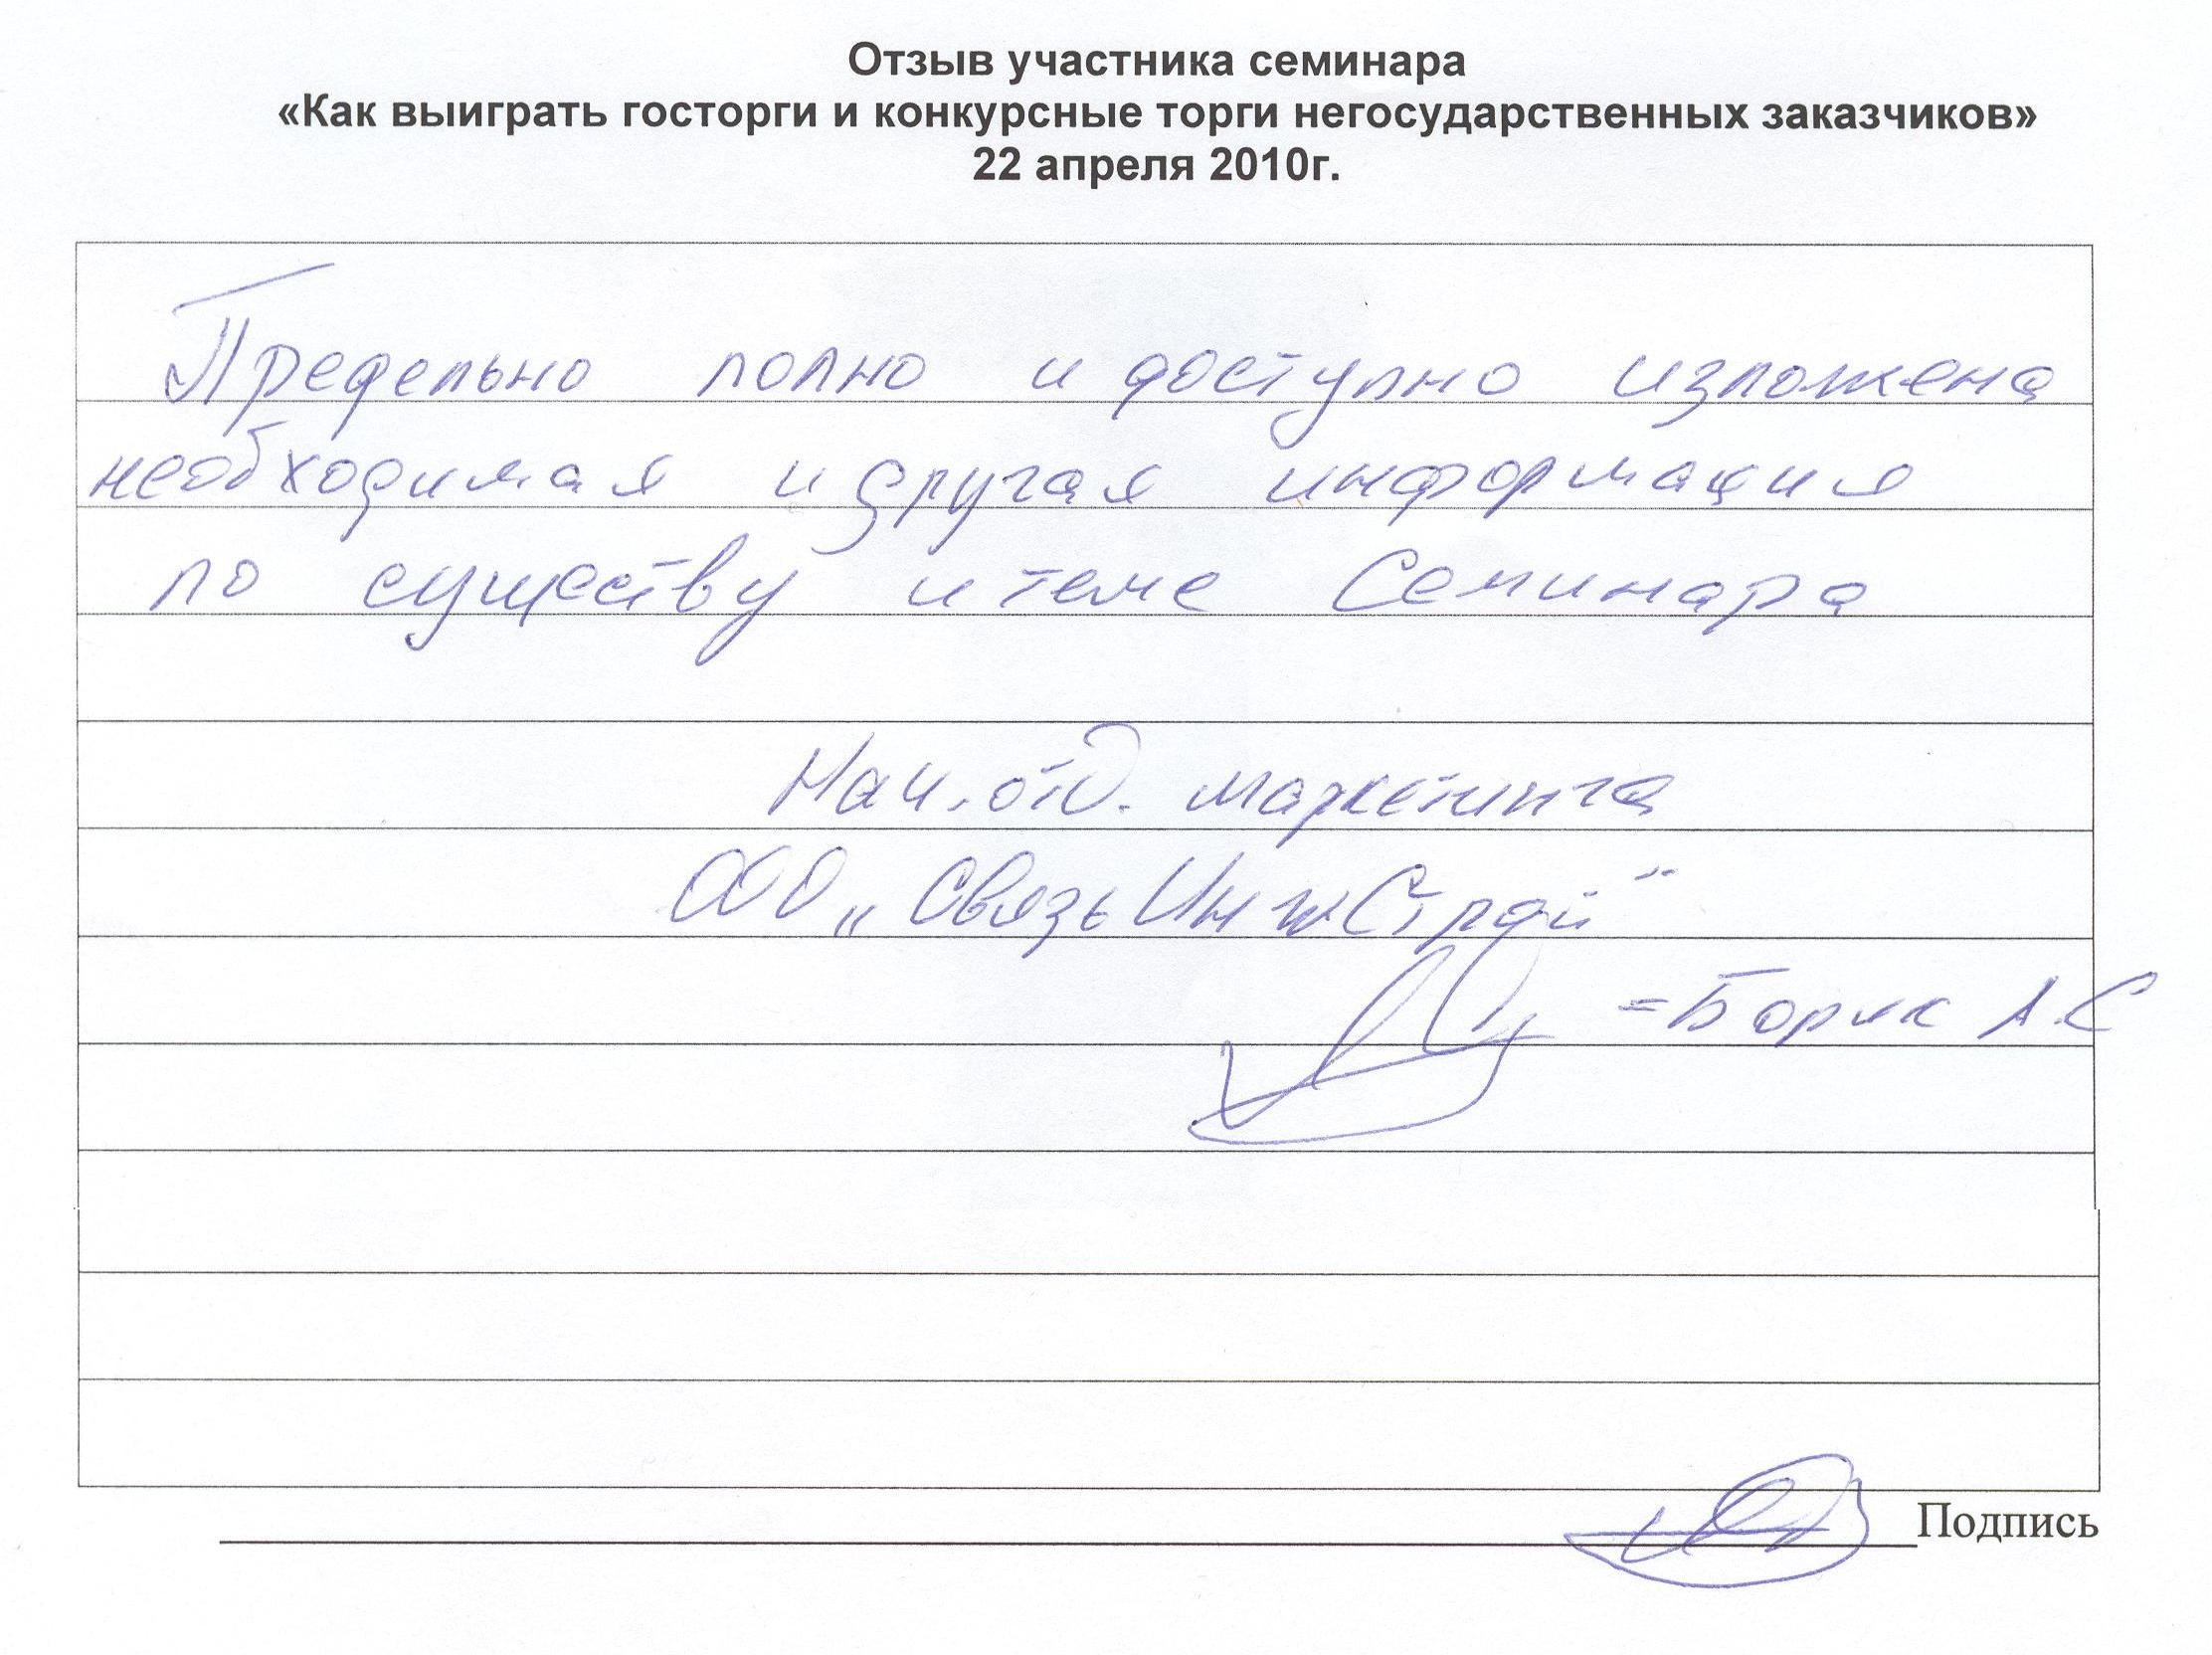 Отзыв участника семинара
«Как выиграть госторги и конкурсные торги негосударственных заказчиков»
22 апреля 2010г.
Предельно полно и доступно изложена
необходимая и другая информация
по существу и теме Семинара
Нач. отд. маркетинга
ООО „СвязьИнжСтрой"
=Боряк А.С
Подпись